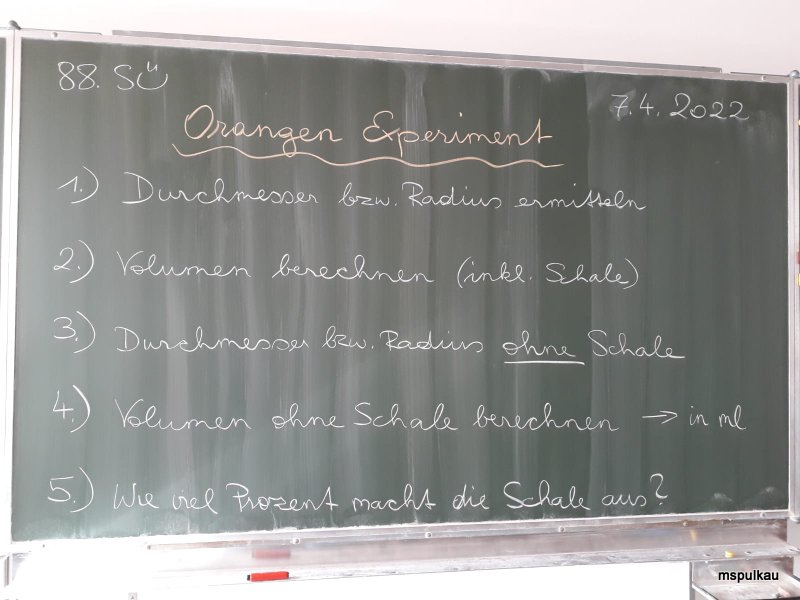 88. SÜ
7.4.2022
Orangen Experiment
1.) Durchmesser bzw. Radius ermitteln
2.) Volumen berechnen (inkl. Schale)
3.) Durchmesser bzw. Radius ohne Schale
4.) Volumen ohne Schale berechnen → in ml
5.) Wie viel Prozent macht die Schale aus?
mspulkau